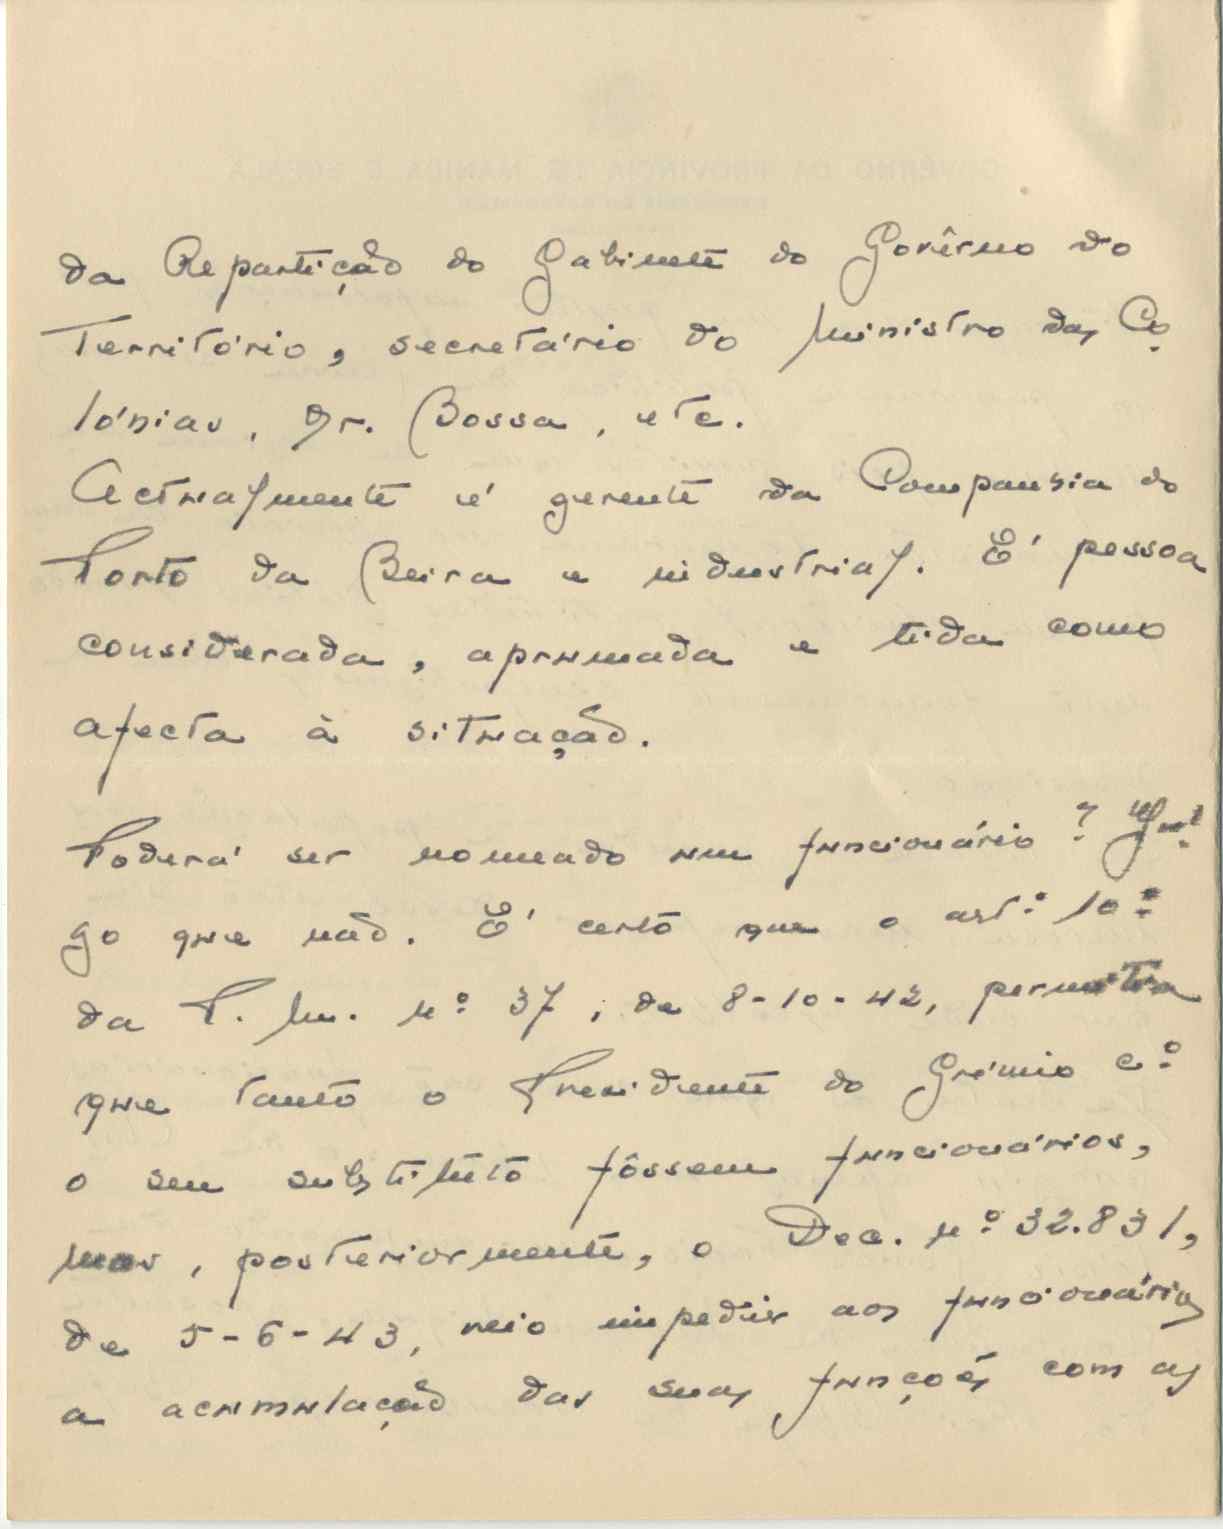 da Repartição do Gabinete do Govêrno do
Território, secretário do Ministro das Co
lónias, Dr. Bossa, etc.
Actualmente é gerente da Companhia do
Porto da Beira e industrial. É pessoa
considerada, aprumada e tida como
afecta à situação.
Poderá ser nomeado um funcionário?
go que não. É certo que o artº 10º
da P. M. nº 37, de 8-10-42, permitia
que tanto o Presidente do Grémio cº
o seu substituto fôssem funcionários,
mas, posteriormente, o Dec. nº 32.831,
de 5-6-43, veio impedir aos funcionários
a acumulação das suas funções com as